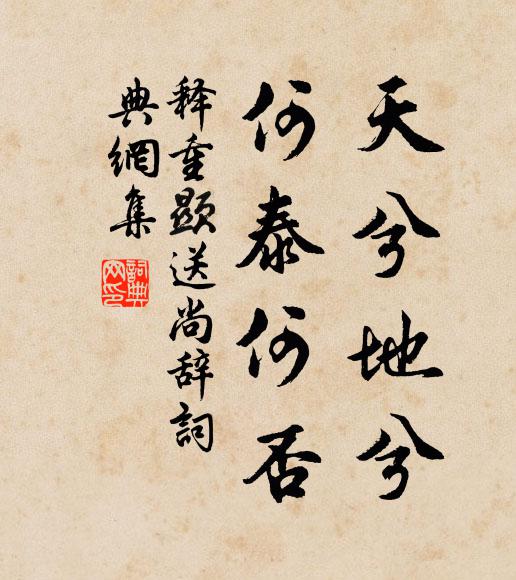 天兮地兮
何泰何否
释重顯送尚辞詞
典網集
詞典网印